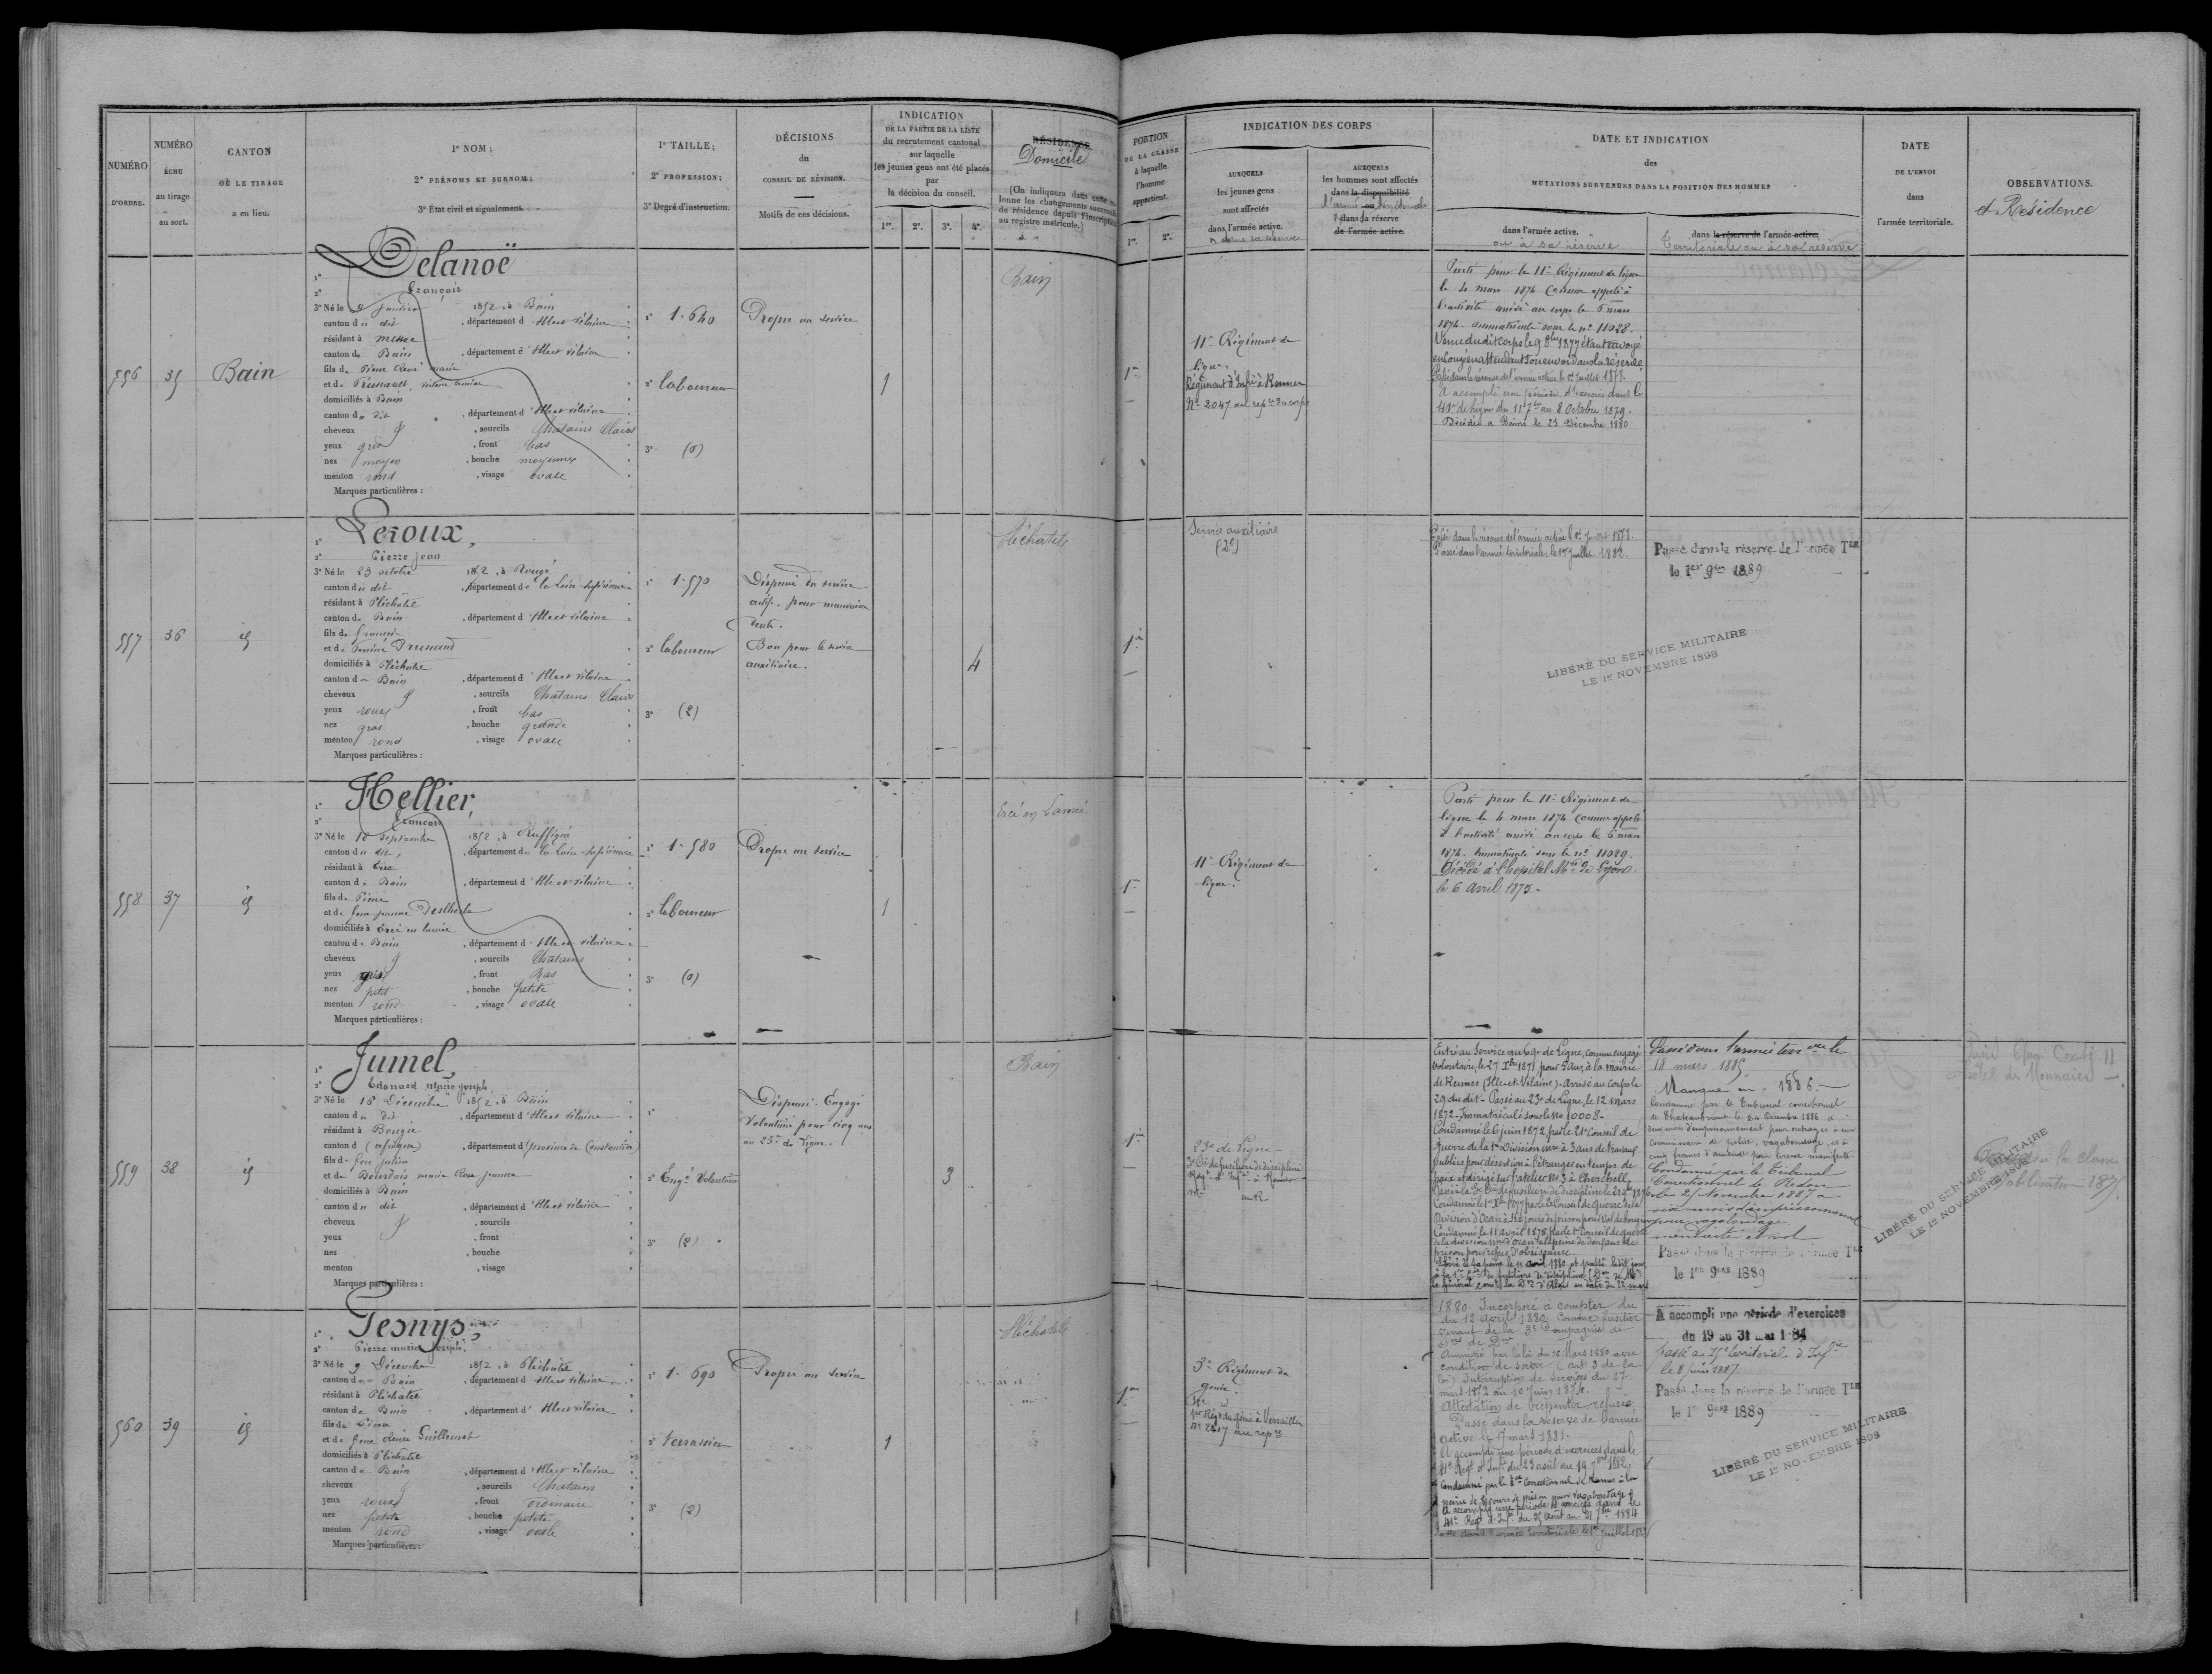 NUMÉRO
D'ORDRE.
NUMÉRO
ÉCHU
au tirage
au sort.
CANTON
OÙ LE TIRAGE
a eu lieu.
1º NOM;
2º PRÉNOMS ET SURNOM;
3º État civil et signalement.
1º TAILLE;
2º PROFESSION;
3º Degré d'instruction.
DÉCISIONS
du
CONSEIL DE RÉVISION.
Motifs de ces décisions.
INDICATION
DE LA PARTIE DE LA LISTE
du recrutement cantonal
sur laquelle
les jeunes gens ont été placés
par
la décision du conseil.
1re. 2e. 3e. 4e.
RÉSIDENCE
Domicile
(On indiquera dans cette
lonne les changements
de résidence depuis l'inscription
au registre matricule.)
PORTION
DE LA CLASSE
à laquelle
l'homme
appartient.
1re. 2e.
INDICATION DES CORPS
AUXQUELS
les jeunes gens
sont affectés
dans l'armée active.
ou dans sa réserve
AUXQUELS
les hommes sont affectés
dans la disponibilité
l'armée ou territoriale
dans la réserve
de l'armée active.
DATE ET INDICATION
des
MUTATIONS SURVENUES DANS LA POSITION DES HOMMES
dans l'armée active.
ou à sa réserve
dans la réserve de l'armée active.
Territoriale ou à sa réserve
DATE
DE L'ENVOI
dans
l'armée territoriale.
OBSERVATIONS.
et Résidence
556
35
Bain
1º Delanoë
2º François
3º Né le 9 janvier 1852, à Bain
canton du dit, département d'Ille et Vilaine
résidant à Messac
canton de Bain, département d'Ille et Vilaine
fils de Pierre marie
et de
domiciliés à Bain
canton du dit, département d'Ille et Vilaine
cheveux et, sourcils Chatains Clairs
yeux gris, front bas
nez moyen, bouche moyenne
menton rond, visage ovale
Marques particulières :
1º 1.640
2º Laboureur
3º (0)
Propre au service
1
Bain
1re
11e Régiment de
ligne.
Régiment d'Infie à Rennes
Nº 2047 au repre du corps
Parti pour le 11e Régiment de ligne
le 4 mars 1874 Comme appelé à
l'activité arrivé au corps le 6 mars
1874. immatriculé sous le nº 11028.
Venu dudit Corps le 9 8bre 1877 étant envoyé
en Congé en attendant son envoi dans la réserve
Passé dans la réserve de l'armée active le 1er Juillet 1878.
A accompli une période d'exercice dans le
41e de ligne du 11 7bre au 8 Octobre 1879.
Décédé à Bain le 23 Décembre 1880
557
36
id
1º Leroux,
2º Pierre Jean
3º Né le 23 octobre 1852, à Rougé
canton du dit, département de la Loire Inférieure
résidant à Pléchatel
canton de Bain, département d'Ille et Vilaine
fils de François
et de
domiciliés à Pléchatel
canton de Bain, département d'Ille et Vilaine
cheveux et, sourcils Chatains Clairs
yeux roux, front bas
nez gros, bouche grande
menton rond, visage ovale
Marques particulières :
1º 1.570
2º Laboureur
3º (2)
Dispensé du service
actif pour mauvaise
dents.
Bon pour le service
auxiliaire.
4
Pléchatel
1re
Service auxiliaire
(2e)
Passé dans la réserve de l'armée active le 1er Juillet 1878.
Passé dans l'armée territoriale, le 1er Juillet 1882.
Passé dans la réserve de l'armée Tle
le 1er 9bre 1889
LIBÉRÉ DU SERVICE MILITAIRE
LE 1er NOVEMBRE 1898
558
37
id
1º Hellier,
2º François
3º Né le 18 Septembre 1852, à Ruffigné
canton du dit, département de la Loire Inférieure
résidant à Ercé
canton de Bain, département d'Ille et Vilaine
fils de Pierre
et de feue jeanne
domiciliés à Ercé en lamée
canton de Bain, département d'Ille et Vilaine
cheveux et, sourcils Chatains
yeux gris, front Bas
nez petit, bouche petite
menton rond, visage ovale
Marques particulières :
1º 1.580
2º Laboureur
3º (0)
Propre au service
1
Ercé en Lamée
1re
11e Régiment de
ligne.
Parti pour le 11e Régiment de
ligne le 4 mars 1874 Comme appelé
à l'activité arrivé au corps le 6 mars
1874. immatriculé sous le nº 11029.
Décédé à l'hopital Mre de Lyon
le 6 avril 1875.
559
38
id
1º Jumel,
2º Edouard Marie Joseph
3º Né le 18 Décembre 1852, à Bain
canton du dit, département d'Ille et Vilaine
résidant à Bougie
canton d (afrique), département d (province de Constantine)
fils de feu julien
et de Bourdais marie Rose jeanne
domiciliés à Bain
canton du dit, département d'Ille et Vilaine
cheveux et, sourcils
yeux, front
nez, bouche
menton, visage
Marques particulières :
2º Engé Volontaire
3º (2)
Dispensé. Engagé
Volontaire pour cinq ans
au 23e de ligne.
3
Bain
1re
23e de Ligne
3e Cie de fusiliers de discipline
Régt d'Infie à Rennes
Nº au R
Entré au Service au 69e de Ligne, comme engagé
volontaire, le 27 Xbre 1871, pour 5 ans, à la mairie
de Rennes (Ille-et-Vilaine). Arrivé au Corps le
29 du dit. Passé au 23e de Ligne, le 12 mars
1872. Immatriculé sous le No 10008.
Condamné le 6 juin 1872, par le 21e Conseil de
Guerre de la 1re Division mre à 3 ans de travaux
publics pour désertion à l'étranger en temps de
paix et dirigé sur l'atelier No 3 à Cherchell,
Passé à la 3e Cie de fusiliers de discipline le
Condamné le 1er Xbre 1877 par le 2e Conseil de Guerre de la
Division d'Oran à
Condamné le 11 avril 1878, par le 1er Conseil de guerre
de la division mre d'Oran à la peine de deux ans de
prison pour refus d'obéissance.
Passé dans l'armée terrale le
18 mars 1885.
Manque en 1886.
Condamné par le Tribunal correctionnel
de Chateaubriant le 24 Décembre 1886 à
deux mois d'emprisonnement pour outrages à un
commissaire de police, vagabondage, et à
cinq francs d'amende pour ivresse manifeste
Condamné par le Tribunal
Correctionnel de Redon
le 25 Novembre 1887 à
six mois d'emprisonnement
pour vagabondage,
mendicité et vol
Passé dans la réserve de l'armée Tle
le 1er 9bre 1889
LIBÉRÉ DU SERVICE MILITAIRE
LE 1er NOVEMBRE 1898
560
39
id
1º Tesnys
2º Pierre marie Joseph
3º Né le 9 Décembre 1852, à Pléchatel
canton de Bain, département d'Ille et Vilaine
résidant à Pléchatel
canton de Bain, département d'Ille et Vilaine
fils de Pierre
et de feue Guillemot
domiciliés à Pléchatel
canton de Bain, département d'Ille et Vilaine
cheveux et, sourcils Chatains
yeux roux, front ordinaire
nez petit, bouche petite
menton rond, visage ovale
Marques particulières :
1º 1.690
2º Terrassier
3º (2)
Propre au service
1
Pléchatel
1re
3e Régiment du
génie.
1er Régt du génie à Versailles
Nº 2417 au repre
1880. Incorporé à compter du
du 12 avril 1880. Comme fusilier
venant de la 3e Compagnie de
Amnistié par la loi du 10 Mars 1880 avec
condition de servir (art 3 de la
loi). Interruption de Services du 27
mars 1872 au 10 Juin 1874.
Attestation de repentir refusée,
Passé dans la réserve de l'armée
active le 17 mars 1881.
A accompli une période d'exercices dans le
41e Régt d'Infie du 23 août au 19 7bre 1882.
A accompli une période d'exercices dans le
41e Régt d'Infie du 25 Août au 21 7bre 1884
A accompli une période d'exercices
du 19 au 31 mai 1884
passé au 75e territorial d'Infie
le 8 juin 1887.
Passé dans la réserve de l'armée Tle
le 1er 9bre 1889
LIBÉRÉ DU SERVICE MILITAIRE
LE 1er NOVEMBRE 1898